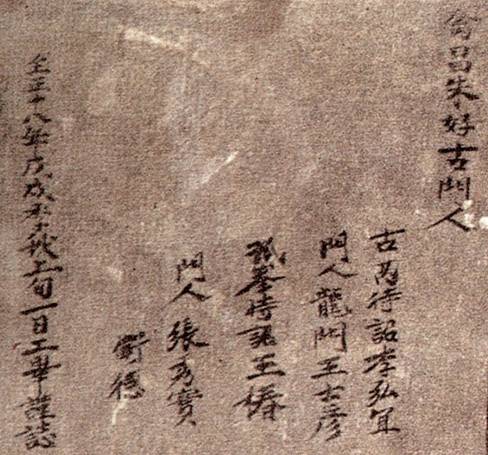 禽昌朱好古門人
古芮待詔李弘宜
門人龍門王士彥
孤峯待詔王椿
門人張秀實
衛德
至正十八年戊戌季秋上旬一日工畢謹誌